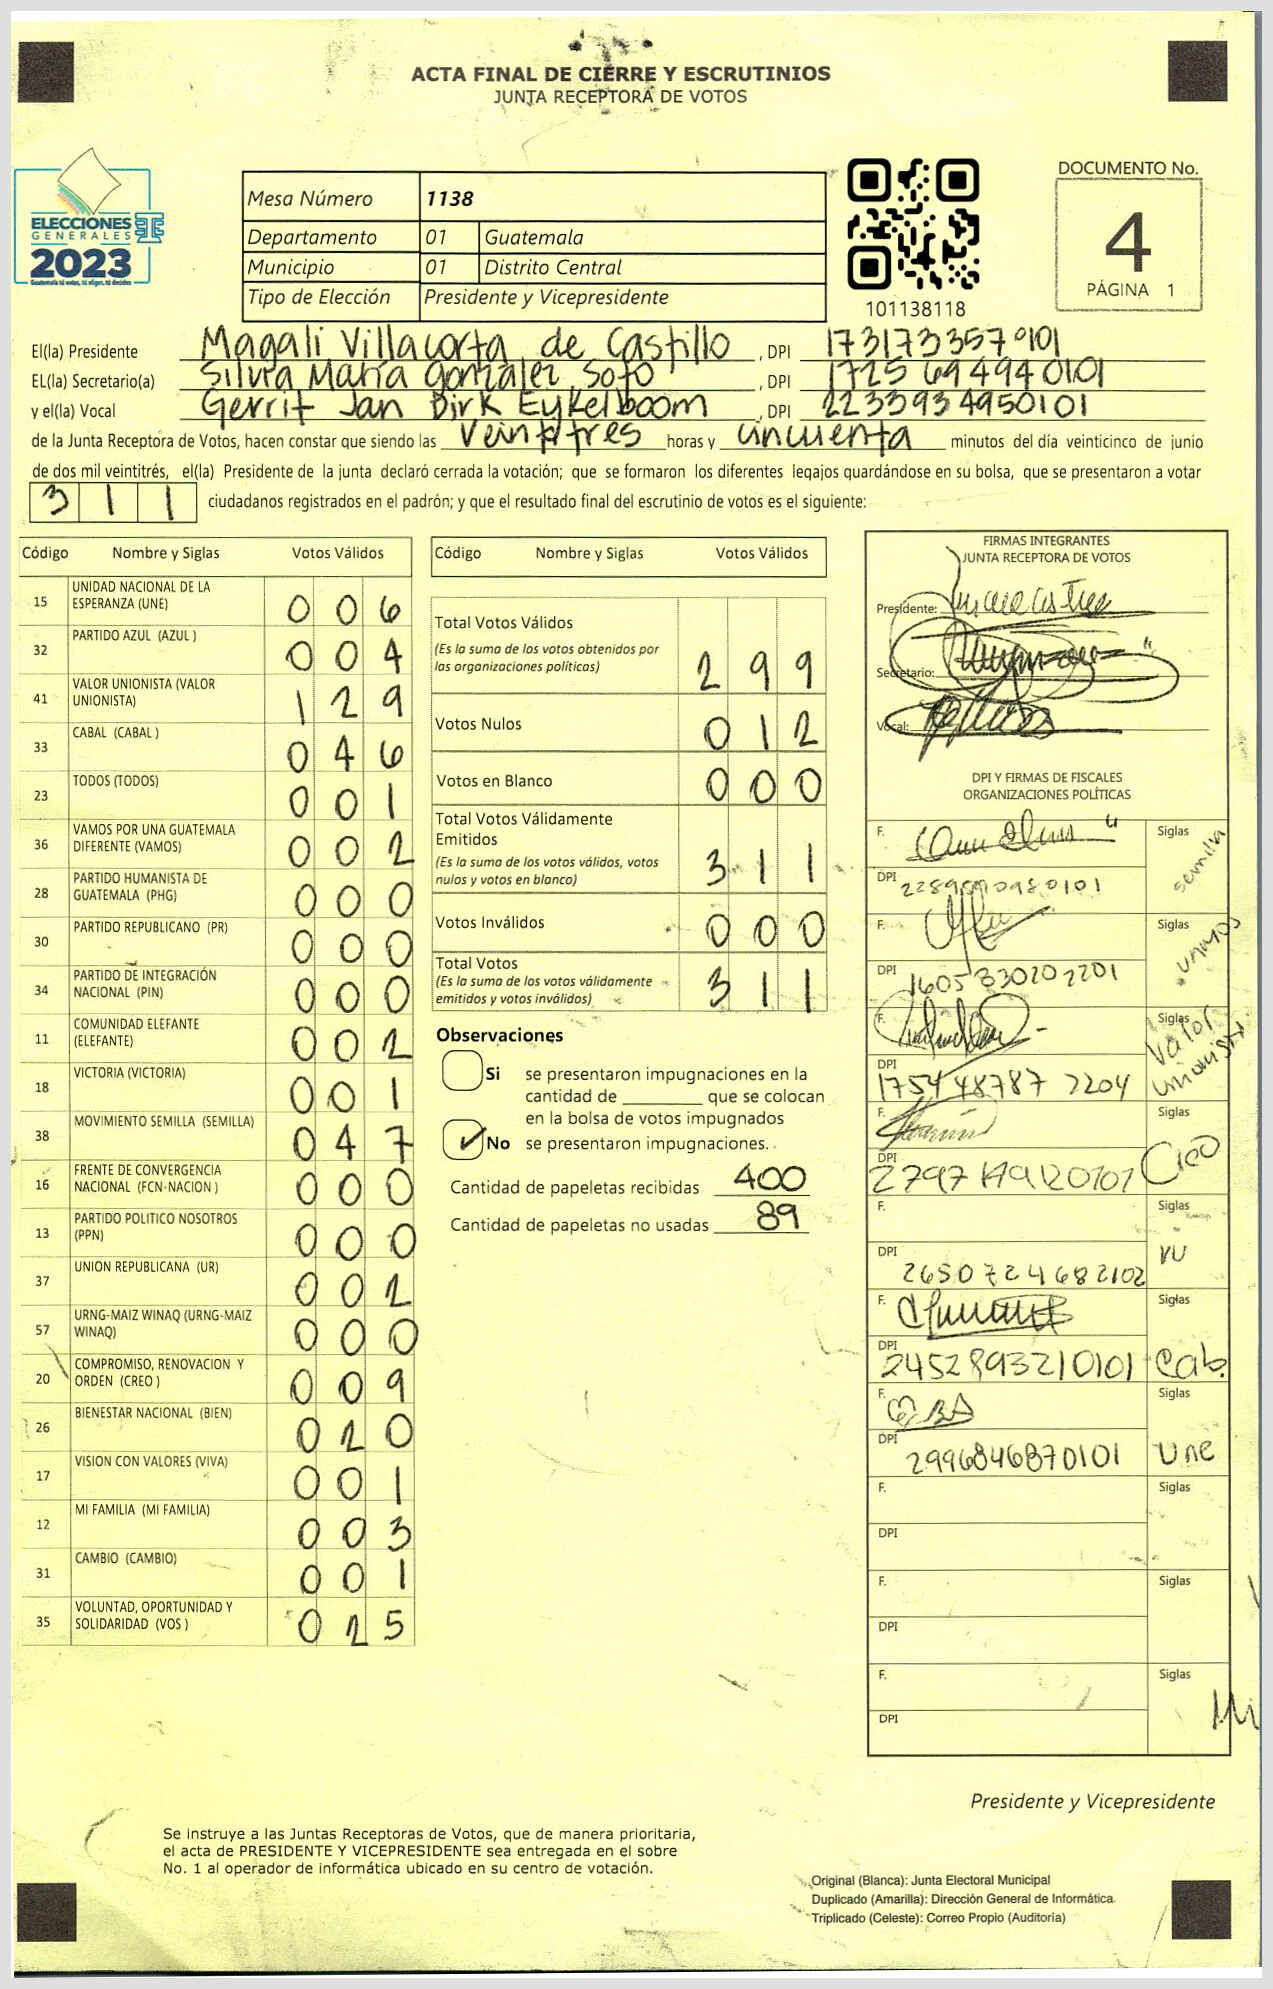 ACTA FINAL DE CIERRE Y ESCRUTINIOS
JUNTA RECEPTORA DE VOTOS
ELECCIONES
GENERALES
2023
Guatemala tú votas, tú eliges, tú decides
Mesa Número 1138
Departamento 01 Guatemala
Municipio 01 Distrito Central
Tipo de Elección Presidente y Vicepresidente
101138118
DOCUMENTO No.
4
PÁGINA 1
El(la) Presidente Magali Villacorta de Castillo, DPI 173173357 0101
EL(la) Secretario(a) Silvia María González Soto, DPI 1725 69494 0101
y el(la) Vocal Gerrit Jan Dirk Eykelboom, DPI 2233934950101
de la Junta Receptora de Votos, hacen constar que siendo las veintitres horas y cincuenta minutos del día veinticinco de junio
de dos mil veintitrés, el(la) Presidente de la junta declaró cerrada la votación; que se formaron los diferentes legajos guardándose en su bolsa, que se presentaron a votar
311 ciudadanos registrados en el padrón; y que el resultado final del escrutinio de votos es el siguiente:
Código Nombre y Siglas Votos Válidos
15 UNIDAD NACIONAL DE LA ESPERANZA (UNE) 006
32 PARTIDO AZUL (AZUL ) 004
41 VALOR UNIONISTA (VALOR UNIONISTA) 129
33 CABAL (CABAL ) 046
23 TODOS (TODOS) 001
36 VAMOS POR UNA GUATEMALA DIFERENTE (VAMOS) 002
28 PARTIDO HUMANISTA DE GUATEMALA (PHG) 000
30 PARTIDO REPUBLICANO (PR) 000
34 PARTIDO DE INTEGRACIÓN NACIONAL (PIN) 000
11 COMUNIDAD ELEFANTE (ELEFANTE) 002
18 VICTORIA (VICTORIA) 001
38 MOVIMIENTO SEMILLA (SEMILLA) 047
16 FRENTE DE CONVERGENCIA NACIONAL (FCN-NACION ) 000
13 PARTIDO POLITICO NOSOTROS (PPN) 000
37 UNION REPUBLICANA (UR) 002
57 URNG-MAIZ WINAQ (URNG-MAIZ WINAQ) 000
20 COMPROMISO, RENOVACION Y ORDEN (CREO ) 009
26 BIENESTAR NACIONAL (BIEN) 020
17 VISION CON VALORES (VIVA) 001
12 MI FAMILIA (MI FAMILIA) 003
31 CAMBIO (CAMBIO) 001
35 VOLUNTAD, OPORTUNIDAD Y SOLIDARIDAD (VOS ) 025
Código Nombre y Siglas Votos Válidos
Total Votos Válidos 299
(Es la suma de los votos obtenidos por
las organizaciones políticas)
Votos Nulos 012
Votos en Blanco 000
Total Votos Válidamente
Emitidos 311
(Es la suma de los votos válidos, votos
nulos y votos en blanco)
Votos Inválidos 000
Total Votos 311
(Es la suma de los votos válidamente
emitidos y votos inválidos)
Observaciones
Si se presentaron impugnaciones en la
cantidad de ________ que se colocan
en la bolsa de votos impugnados
No se presentaron impugnaciones.
Cantidad de papeletas recibidas 400
Cantidad de papeletas no usadas 89
FIRMAS INTEGRANTES
JUNTA RECEPTORA DE VOTOS
Presidente:
Secretario:
Vocal:
DPI Y FIRMAS DE FISCALES
ORGANIZACIONES POLÍTICAS
F. Siglas semilla
DPI
F. Siglas unimos
DPI 1605330202201
F. Siglas Valor unionista
DPI 1754 48787 2204
F. Siglas Creo
DPI
F. Siglas VU
DPI 2650724682102
F. Siglas Cab.
DPI 2452893210101
F. Siglas Une
DPI 2996846870101
F. Siglas
DPI
F. Siglas
DPI
F. Siglas
DPI
Presidente y Vicepresidente
Se instruye a las Juntas Receptoras de Votos, que de manera prioritaria,
el acta de PRESIDENTE Y VICEPRESIDENTE sea entregada en el sobre
No. 1 al operador de informática ubicado en su centro de votación.
Original (Blanca): Junta Electoral Municipal
Duplicado (Amarilla): Dirección General de Informática
Triplicado (Celeste): Correo Propio (Auditoría)